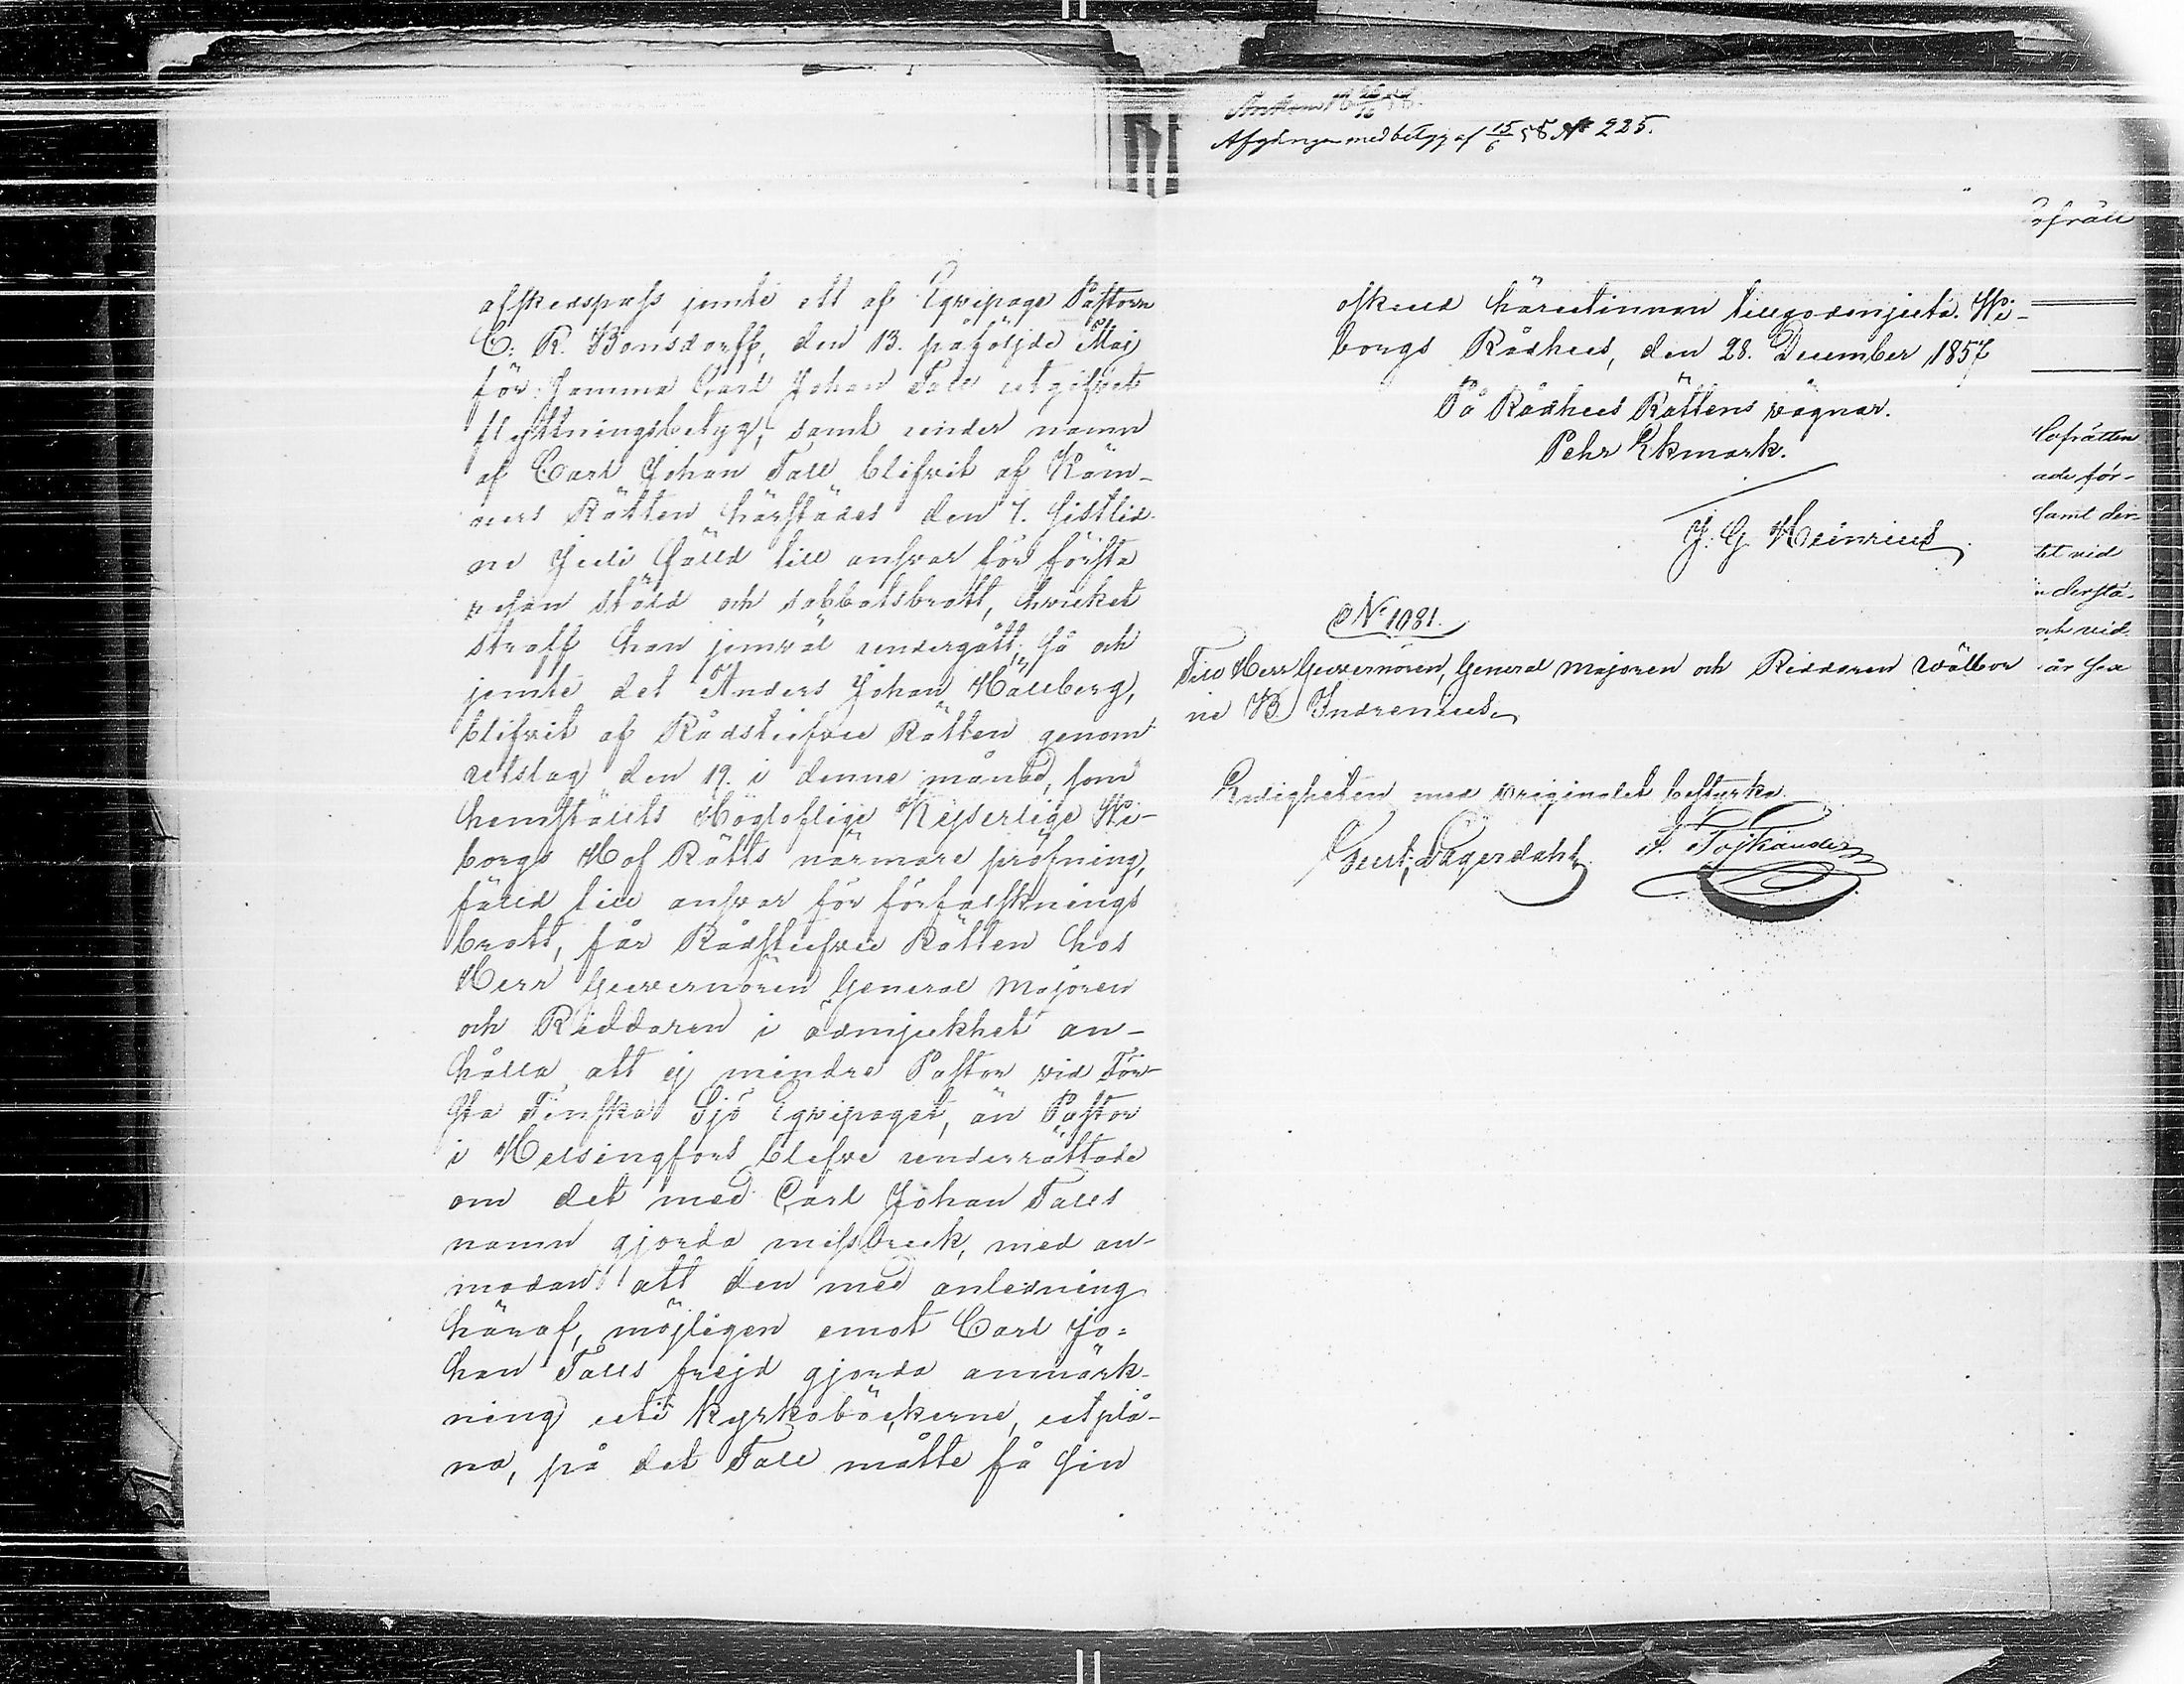 afskedspass jemte ett af Eqvipage Pastorn
C. R. Bonsdorff, den 13. påföljde Maj
för samma Carl Johan Tall utgifvet
flyttningsbetyg, samt under namn
af Carl Johan Tall blifvit af Käm-
ners Rätten härstädes den 7. sistlid-
ne Juli fälld till answar för första
resan stöld och sabbatsbrott, hvilket
straff han jemväl undergått, så och
jemte det Anders Johan Hallberg,
blifvit af Rådstufvu Rätten genom
utslag den 19. i denne månad, som
hemställts Högloflige Kejserlige Wi-
borgs Hof Rätts närmare pröfning,
fälld till answar för förfalsknings
brott, får Rådstufvu Rätten hos
Herr Guvernören General Majoren
och Riddaren i ödmjukhet an-
hålla, att ej mindre Pastor vid För-
sta Finska Sjö Eqvipaget, än Pastor
i Helsingfors blefve underrättade
om det med Carl Johan Talls
namn gjorda missbruk, med an-
modan att den med anledning
häraf, möjligen emot Carl Jo-
han Talls frejd gjorda anmärk-
ning uti kyrkoböckerne, utplå-
na, på det Tall måtte få sin
Afgången med betyg af 15/6 58 N° 225.
oskuld härutinnan tillgodonjuta. Wi-
borgs Rådhus, den 28. December 1857
På Rådhus Rättens vägnar.
Pehr Ekmark.
J. G. Heinricius
N° 1081.
Till Herr Guvernören, General Majoren och Riddaren wälbor
ne B Indrenius.
Riktigheten med originalet bestyrka
Gust. Lagerdahl F. Fajhander
Hofrätten
ade för-
samt der-
tet vid
dersta-
och vid
är sea